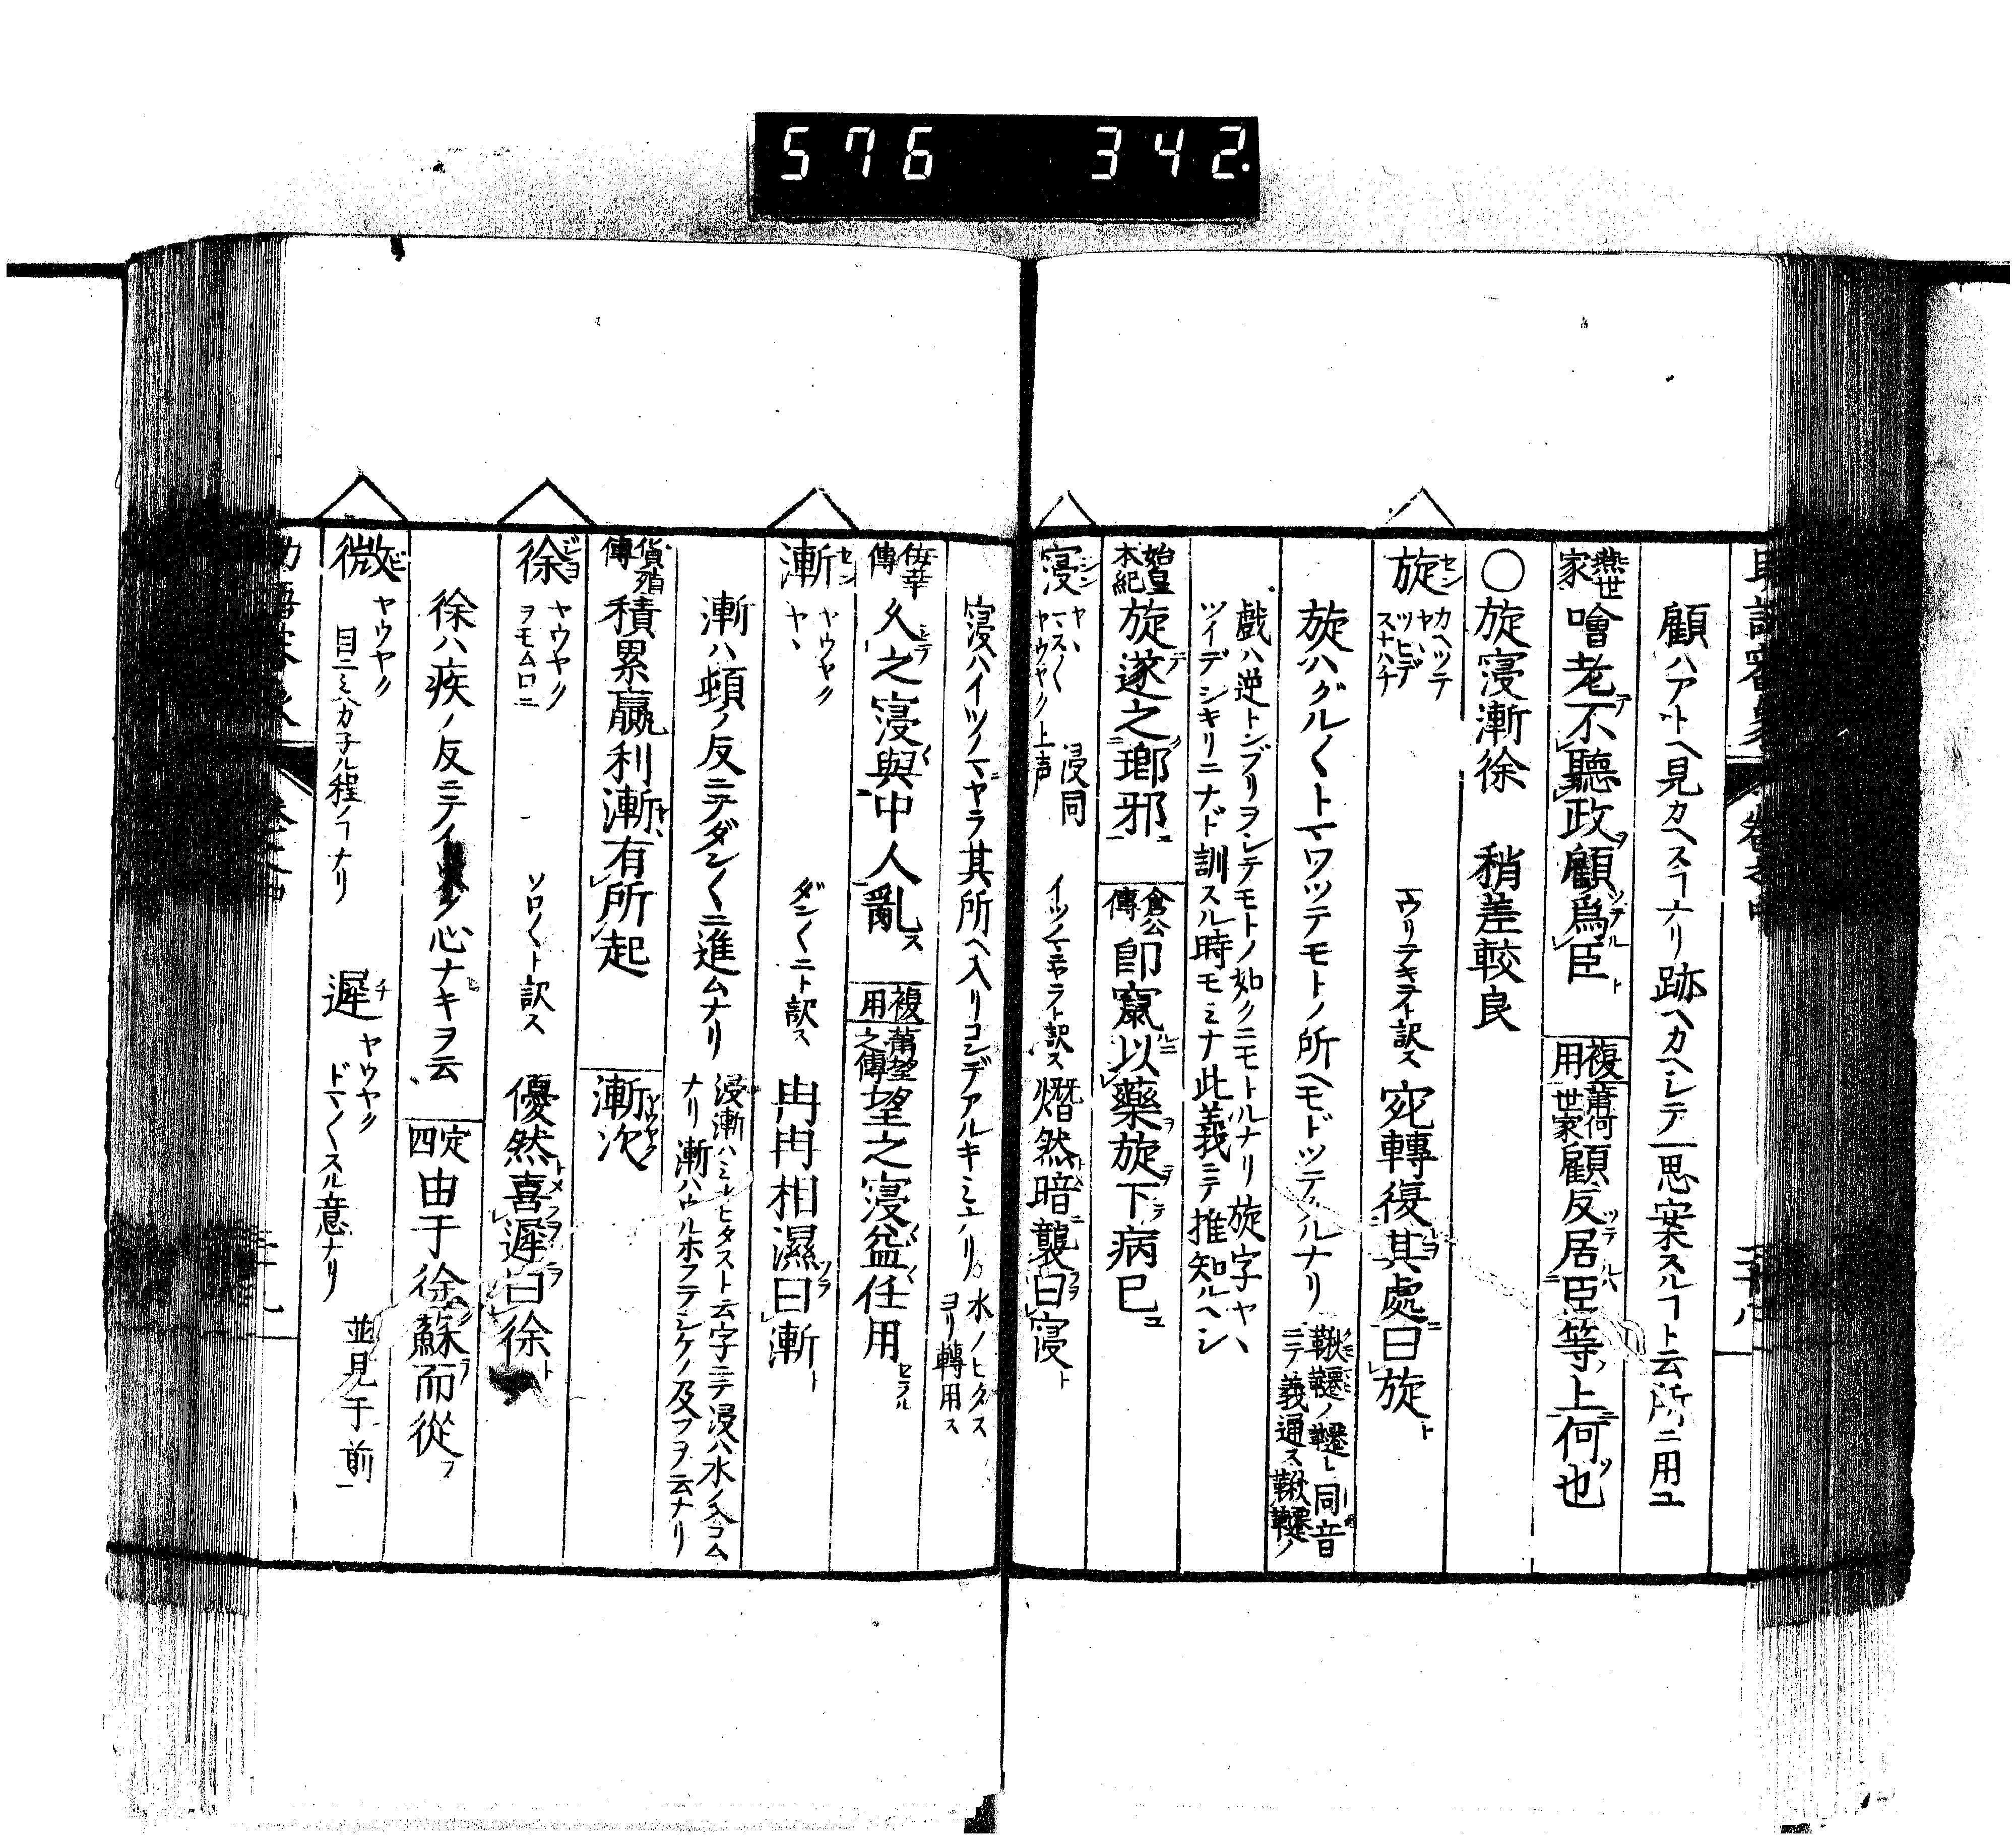 576 342.
顧ハアトヘ見カヘスヿナリ跡ヘカヘレテ一思案スルヿト云所ニ用ユ
燕世家 噲老不聽政顧爲臣 複用 蕭何世家 顧反居臣等上何也
〇旋寖漸徐 稍差較良
旋 セン カヘツテ ヤヽ ツヒデ スナハチ 訳ス 宛轉復其處曰旋
旋ハグル〱トマワツテモトノ所ヘモドツテクルナリ 鞦韆ノ韆ト同音ニテ義通ス鞦韆ノ
戲ハ逆トンブリヲシテモトノ如クニモトルナリ旋字ヤハ
ツイデシキリニナド訓スル時モミナ此義ニテ推知ルヘシ
始皇本紀 旋遂之瑯邪 倉公傳 卽竄以藥旋下病已
寖 シン ヤヽ ヤウヤク 上声 浸同 訳ス 熸然暗襲曰寖
寖ハイツノマヤラ其所ヘ入リコンデアルキミナリ 水ノヒタスヨリ轉用ス
傳 久之寖與中人亂 複用 蕭望之傳 望之寖益任用
漸 セン ヤウヤク ヤヽ ダン〱ニト訳ス 冉冉相濕曰漸
漸ハ頓ノ反ニテダン〱ニ進ムナリ 浸漸ハミナヒタスト云字ニテ浸ハ水ノ入コムナリ漸ハウルホフテシケノ及フヲ云ナリ
貨殖傳 積累贏利漸有所起 漸次
徐 ジヨ ヤウヤク ヲモムロニ ソロ〱ト訳ス 優然喜遲曰徐
徐ハ疾ノ反ニテイ心ナキヲ云 定四 由于徐蘇而從
微 ビ ヤウヤク 目ニミヘカ子ル程ノヿナリ 遲 チ ヤウヤク ドマ〱スル意ナリ 並見于前